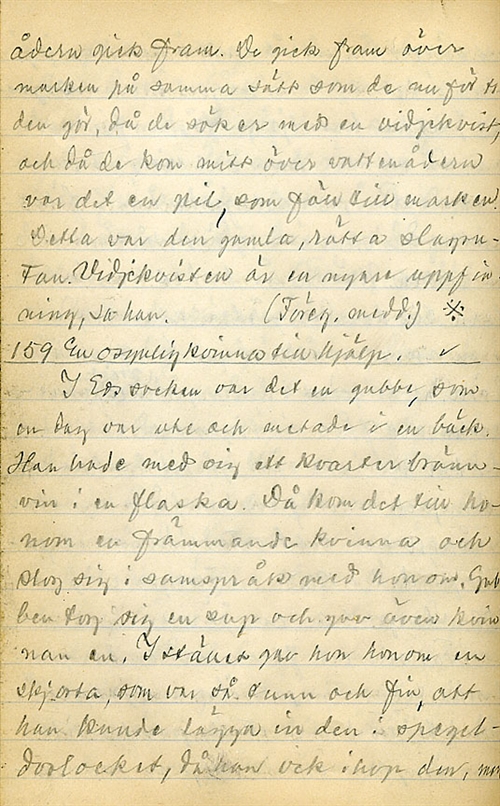 ådern gick fram. De gick fram över
marken på samma sätt som de nu för ti
den gör, då de söker med en vidjekvist,
och då de kom mitt över vattenådern
var det en pil, som föll till marken.
Detta var den gamla, rätta slagru-
tan. Vidjekvisten är en nyare uppfin-
ning, sa han. (Föreg. medd.) ※
159 En osynlig kvinna till hjälp. ✓
I Eds socken var det en gubbe, som
en dag var ute och metade i en bäck.
Han hade med sig ett kvarter bränn-
vin i en flaska. Då kom det till ho-
nom en främmande kvinna och
slog sig i samspråk med honom. Gub
ben tog sig en sup och gav även kvin
nan en. I stället gav hon honom en
skjorta, som var så tunn och fin, att
han kunde lägga in den i spegel-
dorlocket, då han vek ihop den, men